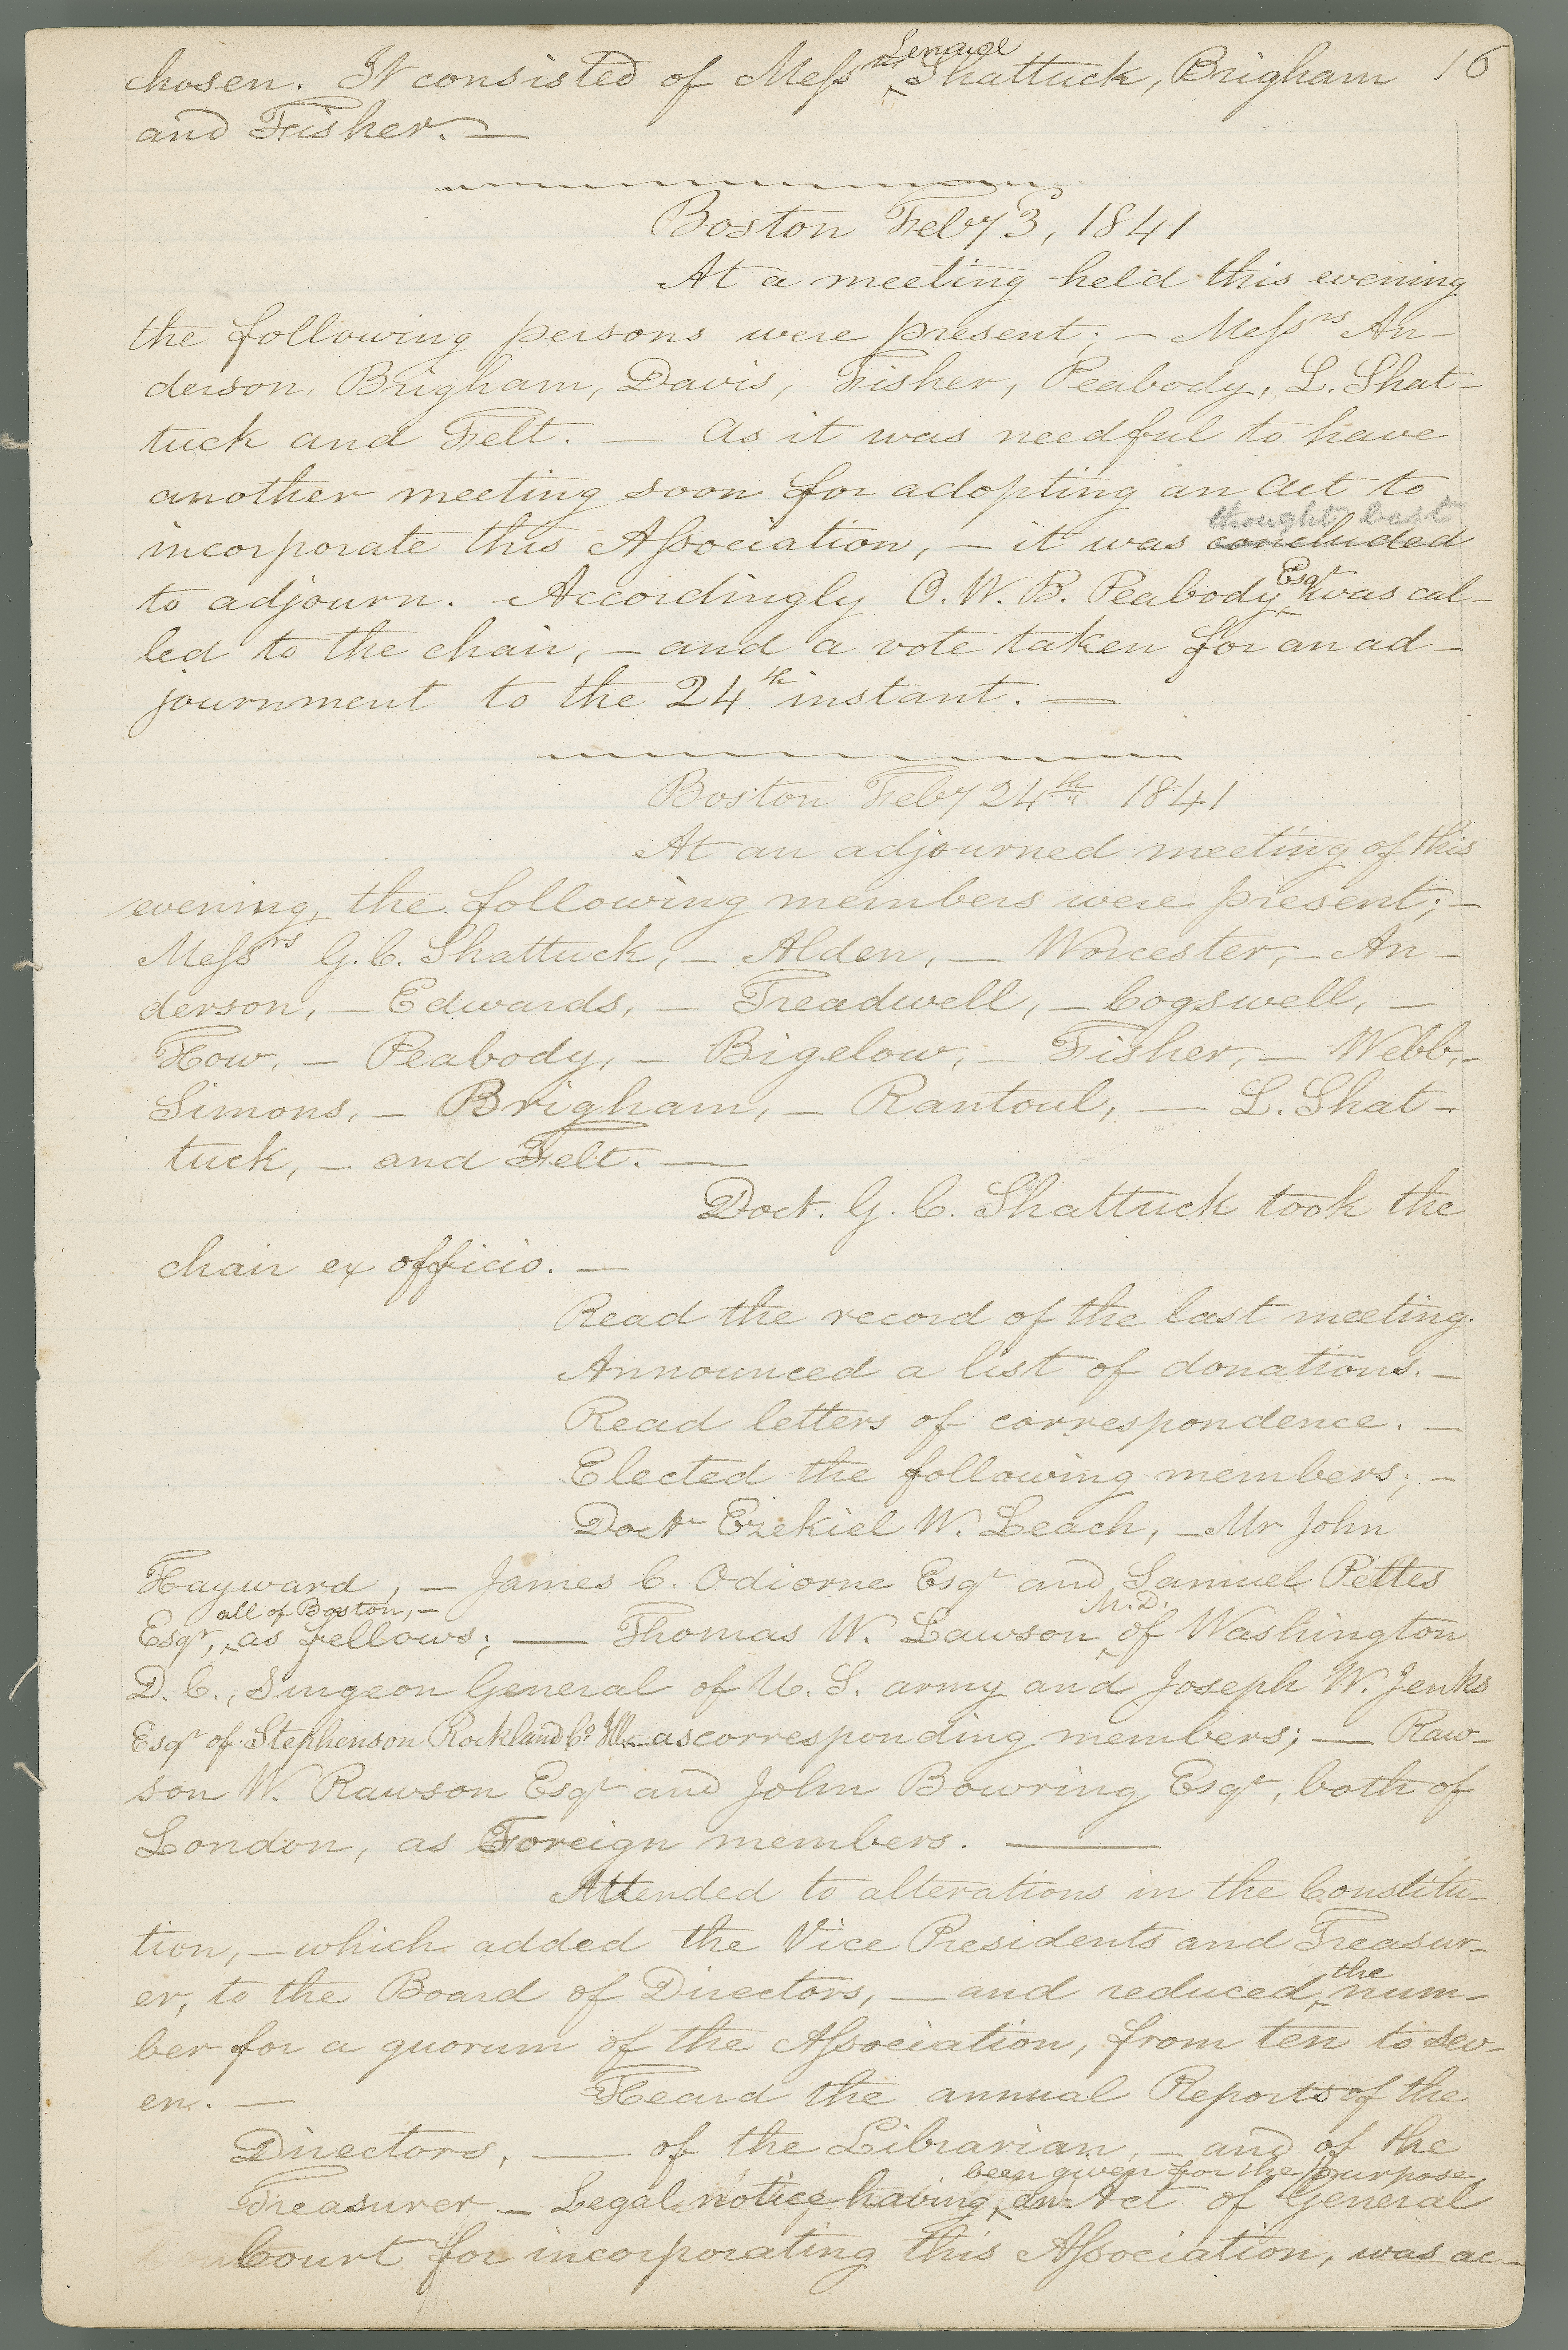 16
chosen. It consisted of Messrs Lemuel Shattuck, Brigham
and Fisher. —
Boston Feby 3, 1841
At a meeting held this evening
the following persons were present; — Messrs An-
derson, Brigham, Davis, Fisher, Peabody, L. Shat-
tuck and Felt. — As it was needful to have
another meeting soon for adopting an Act to
thought best
incorporate this Association, — it was concluded
to adjourn. Accordingly O. W. B. Peabody Esqr was cal-
led to the chair, — and a vote taken for an ad-
journment to the 24th instant. —
Boston Feby 24th 1841
At an adjourned meeting of this
evening, the following members were present; —
Messrs G. C. Shattuck, — Alden, — Worcester, — An-
derson, — Edwards, — Treadwell, — Cogswell, —
How, — Peabody, — Bigelow, — Fisher, — Webb, —
Simons, — Brigham, — Rantoul, — L. Shat-
tuck, — and Felt. —
Doct. G. C. Shattuck took the
chair ex officio. —
Read the record of the last meeting.
Announced a list of donations. —
Read letters of correspondence. —
Elected the following members; —
Doctr Ezekiel W. Leach, — Mr John
Hayward, — James C. Odiorne Esqr and Samuel Pettes
all of Boston, — M.D.
Esqr, as fellows; — Thomas W. Lawson of Washington
D. C., Surgeon General of U. S. army and Joseph W. Jenks
Esqr of Stephenson Rockland Co Ill. as corresponding members; — Raw-
son W. Rawson Esqr and John Bowring Esqr, both of
London, as Foreign members. —
Attended to alterations in the Constitu-
tion, — which added the Vice Presidents and Treasur-
er, to the Board of Directors, — and reduced the num-
ber for a quorum of the Association, from ten to sev-
en. — Heard the annual Reports of the
Directors, — of the Librarian, — and of the
been given for the purpose,
Treasurer — Legal notice having an Act of General
Court for incorporating this Association, was ac-